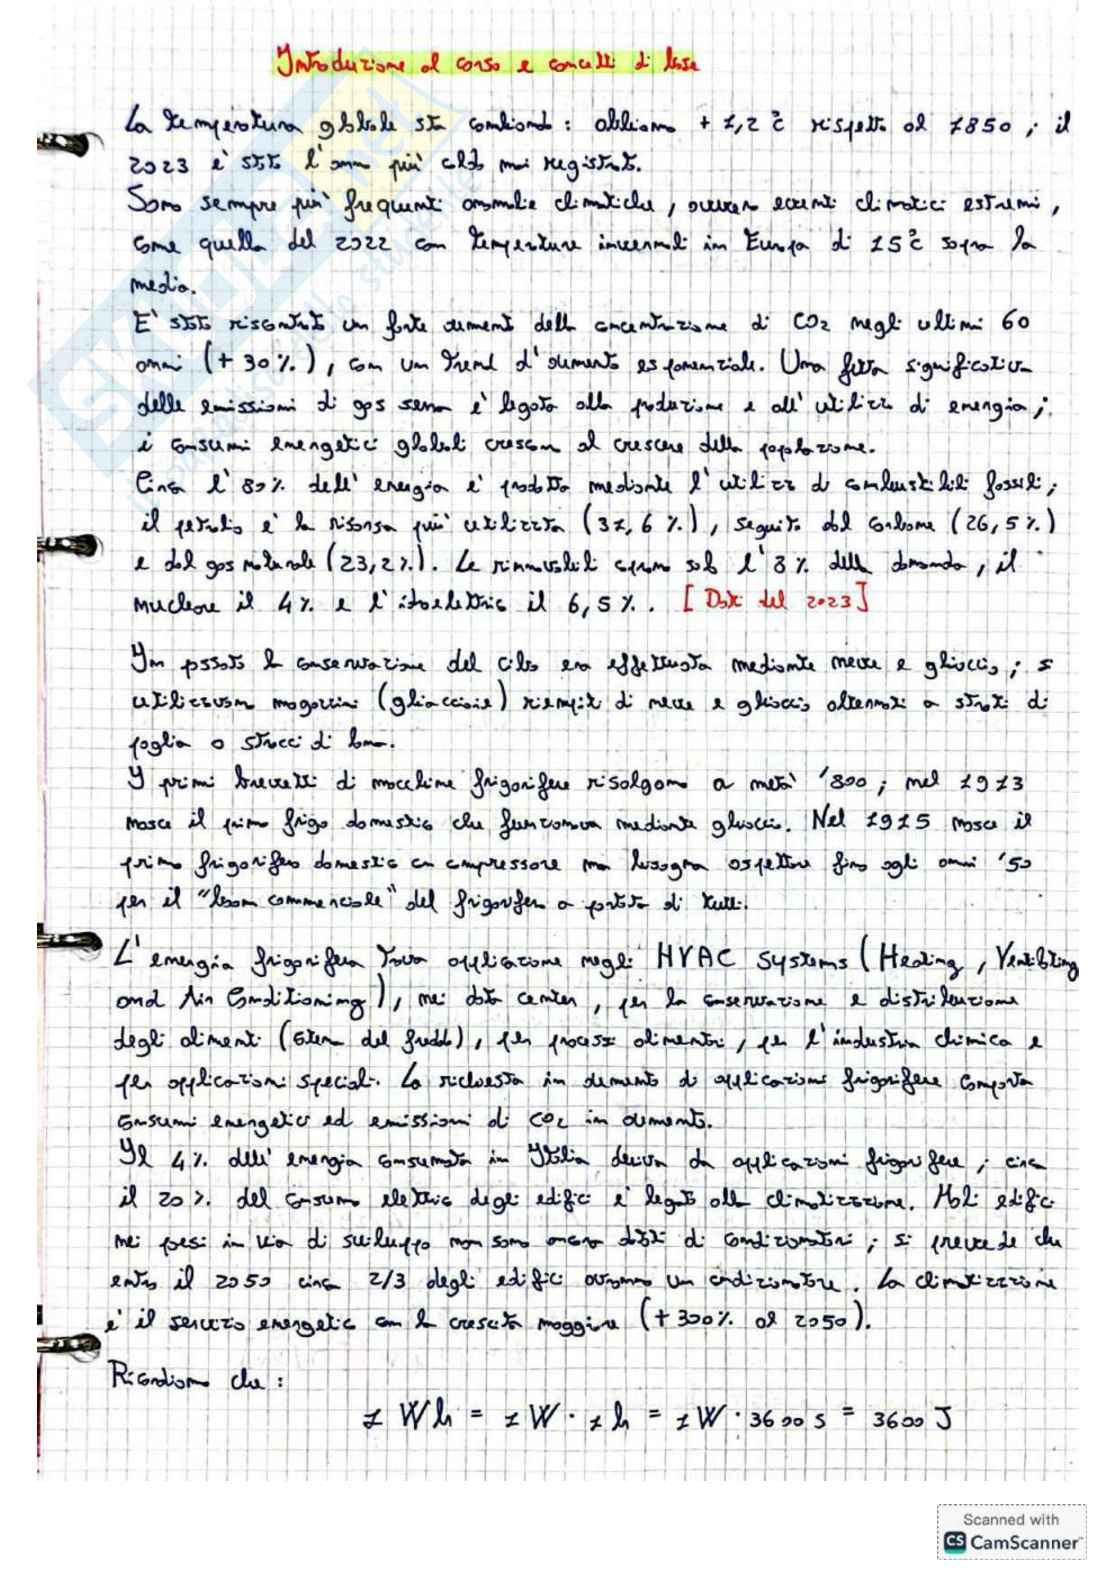 Introduzione al corso e concetti di base
La temperatura globale sta cambiando : abbiamo + 1,2 °C rispetto al 1850 ; il
2023 è stato l'anno più caldo mai registrato.
Sono sempre più frequenti anomalie climatiche, ovvero eventi climatici estremi,
come quella del 2022 con temperature invernali in Europa di 15°C sopra la
media.
E' stato riscontrato un forte aumento della concentrazione di CO2 negli ultimi 60
anni (+ 30 %), con un trend d'aumento esponenziale. Una fetta significativa
delle emissioni di gas serra è legata alla produzione e all'utilizzo di energia ;
i consumi energetici globali crescono al crescere della popolazione.
Circa l'80% dell'energia è prodotta mediante l'utilizzo di combustibili fossili ;
il petrolio è la risorsa più utilizzata (31,6 %), seguito dal carbone (26,5 %)
e dal gas naturale (23,2 %). Le rinnovabili coprono solo l'8 % della domanda, il
nucleare il 4% e l'idroelettrico il 6,5 %. [ Dati del 2023 ]
In passato la conservazione del cibo era effettuata mediante neve e ghiaccio ; si
utilizzavano magazzini (ghiacciaie) riempiti di neve e ghiaccio alternati a strati di
foglia o stracci di lana.
I primi brevetti di macchine frigorifere risalgono a metà '800 ; nel 1913
nasce il primo frigo domestico che funzionava mediante ghiaccio. Nel 1915 nasce il
primo frigorifero domestico con compressore ma bisogna aspettare fino agli anni '50
per il "boom commerciale" del frigorifero a portata di tutti.
L'energia frigorifera trova applicazione negli HVAC systems (Heating, Ventilating
and Air Conditioning), nei data center, per la conservazione e distribuzione
degli alimenti (catena del freddo), per processi alimentari, per l'industria chimica e
per applicazioni speciali. La richiesta in aumento di applicazioni frigorifere comporta
consumi energetici ed emissioni di CO2 in aumento.
Il 4 % dell'energia consumata in Italia deriva da applicazioni frigorifere ; circa
il 20 % del consumo elettrico degli edifici è legato alla climatizzazione. Molti edifici
nei paesi in via di sviluppo non sono ancora dotati di condizionatori ; si prevede che
entro il 2050 circa 2/3 degli edifici avranno un condizionatore. La climatizzazione
è il servizio energetico con la crescita maggiore (+ 300% al 2050).
Ricordiamo che :
1 Wh = 1 W · 1 h = 1 W · 3600 s = 3600 J
Scanned with
CS CamScanner